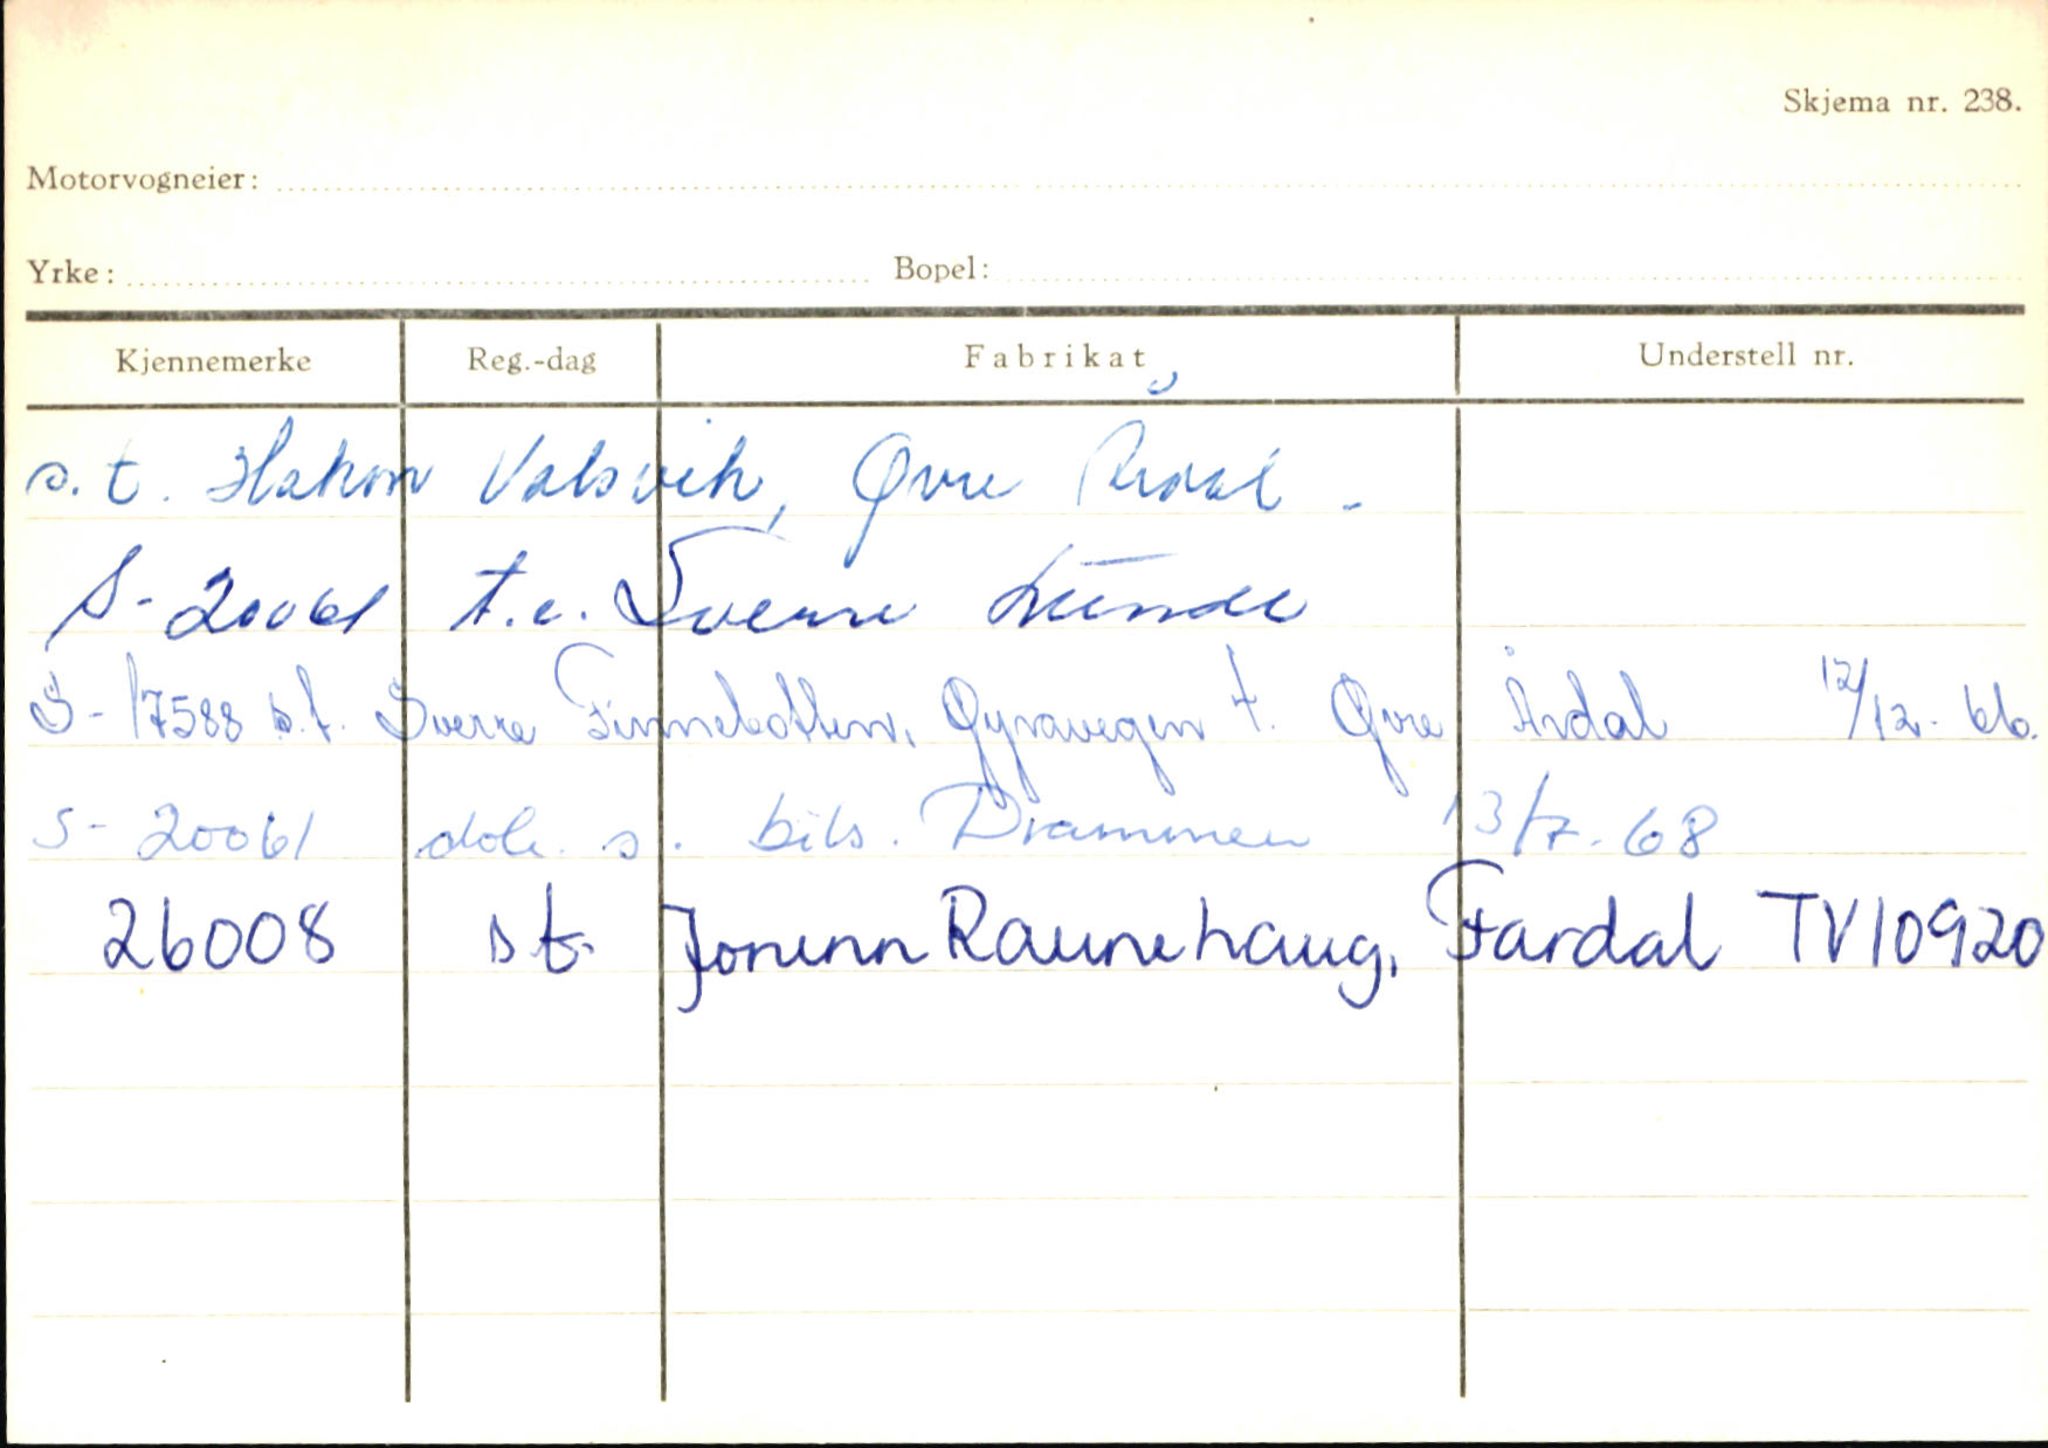 Skjema nr. 238.
Motorvogneier:
Yrke: Bopel:
Kjennemerke Reg.-dag Fabrikat Understell nr.
s.t. Hakon Valsvik, Øvre Årdal -
S-20061 t.e. Sverre
S-17588 s.t. Sverre Finnebotten, Øyravegen 7. Øvre Årdal 12/12-66.
S-20061 s. bils. Drammen 13/7-68
26008 s t. Jorunn Raunehaug, Fardal TV10920